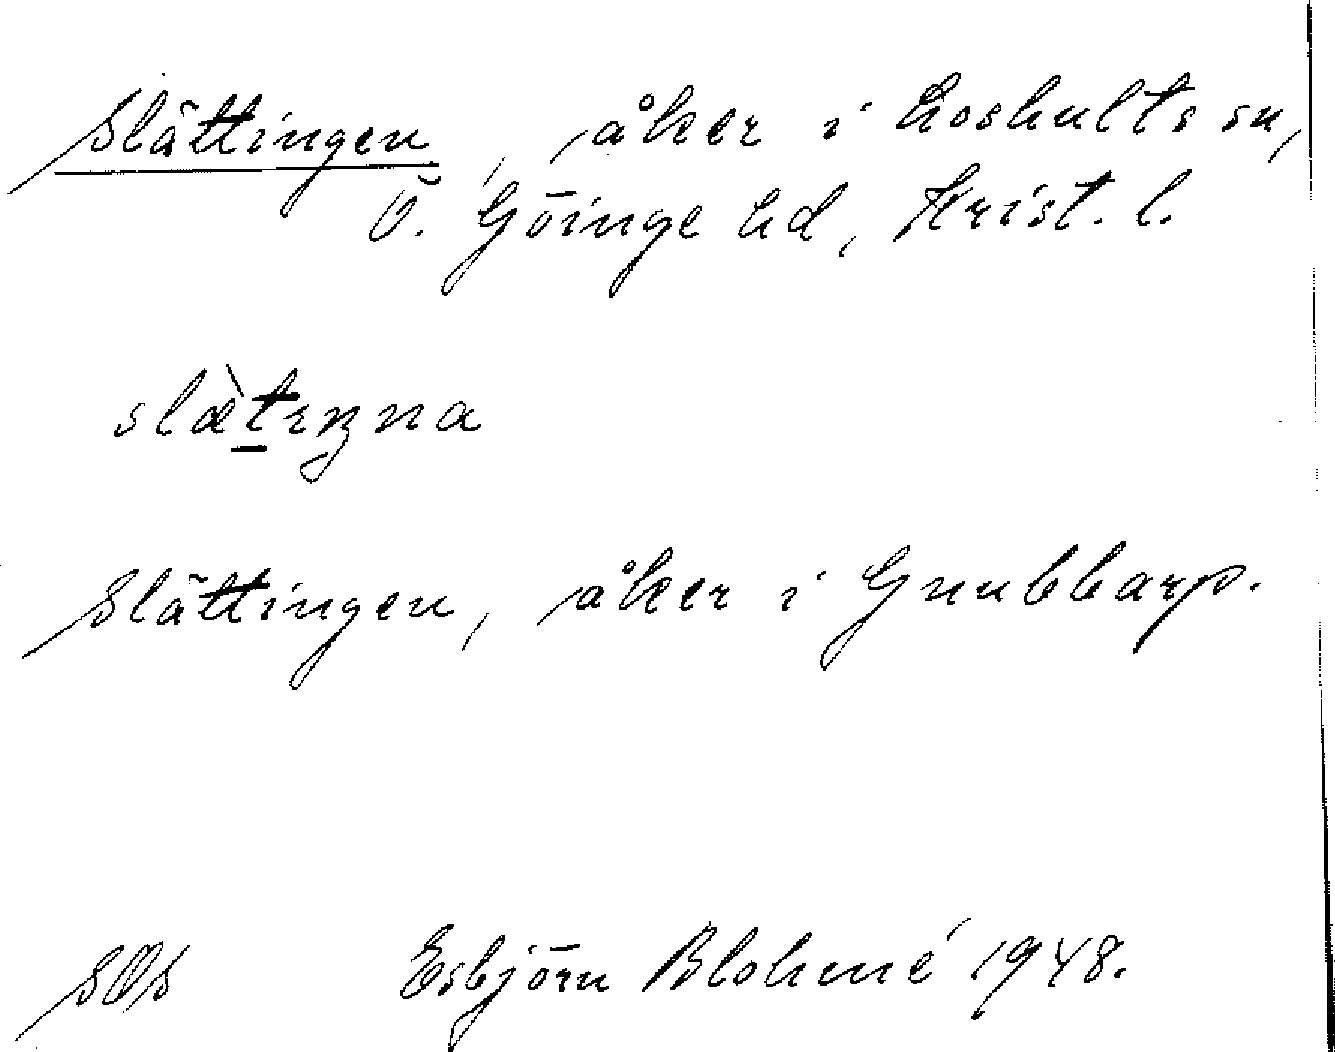 Slättingen, åker i Loshults sn,
Ö. Göinge hd, Krist. l.
slæ̀tıŋna
Slättingen, åker i Gnubbarp.
SOS Esbjörn Blohmé 1948.